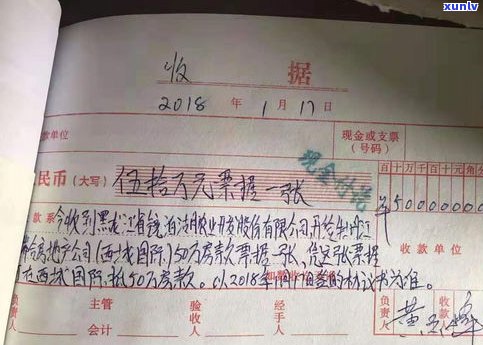 xunlv
收 据
2018 年 1月 17日
款单位
现金或支票
(号码)
民币 (大写) 伍拾万元票据一张
百十万千百十元角分
¥50000000
现金付讫
款系 今收到黑龙江省镜泊湖农业开发股份有限公司开给牡丹江
房地产公司(西城国际)50万房款票据一张,凭这张票据
在西城国际抵50万房款。以2018年 的协议书为准。
收款单位
负责人
主管
会计
验收人
经手人
负责人
收款
黄